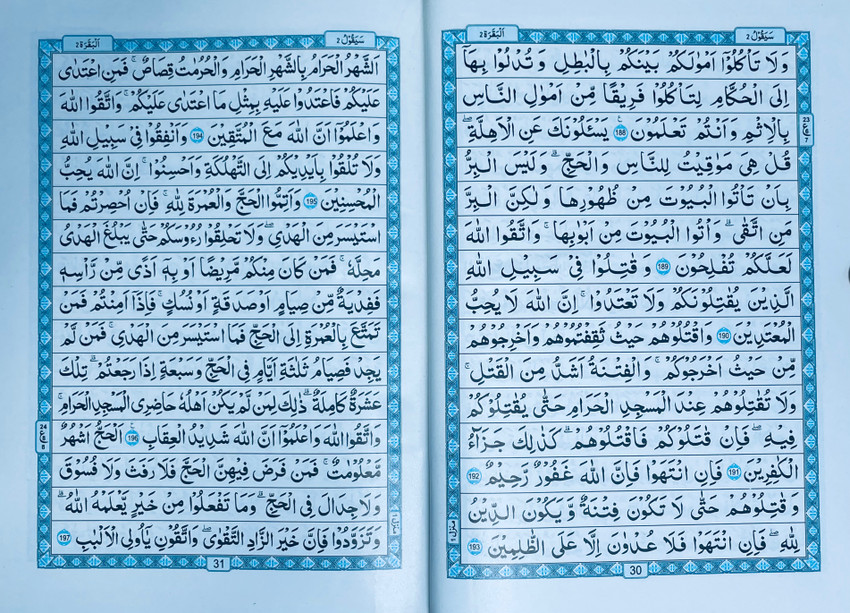 سَيَقُوْلُ 2
اَلْبَقَرَة 2
وَلَا تَاْكُلُوْٓا اَمْوَالَكُمْ بَيْنَكُمْ بِالْبَاطِلِ وَتُدْلُوْا بِهَآ
اِلَى الْحُكَّامِ لِتَاْكُلُوْا فَرِيْقًا مِّنْ اَمْوَالِ النَّاسِ
بِالْاِثْمِ وَاَنْتُمْ تَعْلَمُوْنَ 188 يَسْـَٔلُوْنَكَ عَنِ الْاَهِلَّةِ ؕ
قُلْ هِيَ مَوَاقِيْتُ لِلنَّاسِ وَالْحَجِّ ؕ وَلَيْسَ الْبِرُّ
بِاَنْ تَاْتُوا الْبُيُوْتَ مِنْ ظُهُوْرِهَا وَلٰكِنَّ الْبِرَّ
مَنِ اتَّقٰى ۚ وَاْتُوا الْبُيُوْتَ مِنْ اَبْوَابِهَا ۪ وَاتَّقُوا اللّٰهَ
لَعَلَّكُمْ تُفْلِحُوْنَ 189 وَقَاتِلُوْا فِيْ سَبِيْلِ اللّٰهِ
الَّذِيْنَ يُقَاتِلُوْنَكُمْ وَلَا تَعْتَدُوْا ؕ اِنَّ اللّٰهَ لَا يُحِبُّ
الْمُعْتَدِيْنَ 190 وَاقْتُلُوْهُمْ حَيْثُ ثَقِفْتُمُوْهُمْ وَاَخْرِجُوْهُمْ
مِّنْ حَيْثُ اَخْرَجُوْكُمْ وَالْفِتْنَةُ اَشَدُّ مِنَ الْقَتْلِ ۚ
وَلَا تُقٰتِلُوْهُمْ عِنْدَ الْمَسْجِدِ الْحَرَامِ حَتّٰى يُقٰتِلُوْكُمْ
فِيْهِ ۚ فَاِنْ قٰتَلُوْكُمْ فَاقْتُلُوْهُمْ ؕ كَذٰلِكَ جَزَآءُ
الْكٰفِرِيْنَ 191 فَاِنِ انْتَهَوْا فَاِنَّ اللّٰهَ غَفُوْرٌ رَّحِيْمٌ 192
وَقٰتِلُوْهُمْ حَتّٰى لَا تَكُوْنَ فِتْنَةٌ وَّيَكُوْنَ الدِّيْنُ
لِلّٰهِ ؕ فَاِنِ انْتَهَوْا فَلَا عُدْوَانَ اِلَّا عَلَى الظّٰلِمِيْنَ 193
23
ع
7
منزل ١
30
سَيَقُوْلُ 2
اَلْبَقَرَة 2
اَلشَّهْرُ الْحَرَامُ بِالشَّهْرِ الْحَرَامِ وَالْحُرُمٰتُ قِصَاصٌ ؕ فَمَنِ اعْتَدٰى
عَلَيْكُمْ فَاعْتَدُوْا عَلَيْهِ بِمِثْلِ مَا اعْتَدٰى عَلَيْكُمْ ۪ وَاتَّقُوا اللّٰهَ
وَاعْلَمُوْٓا اَنَّ اللّٰهَ مَعَ الْمُتَّقِيْنَ 194 وَاَنْفِقُوْا فِيْ سَبِيْلِ اللّٰهِ
وَلَا تُلْقُوْا بِاَيْدِيْكُمْ اِلَى التَّهْلُكَةِ وَاَحْسِنُوْا ۚ اِنَّ اللّٰهَ يُحِبُّ
الْمُحْسِنِيْنَ 195 وَاَتِمُّوا الْحَجَّ وَالْعُمْرَةَ لِلّٰهِ ؕ فَاِنْ اُحْصِرْتُمْ فَمَا
اسْتَيْسَرَ مِنَ الْهَدْيِ ۚ وَلَا تَحْلِقُوْا رُءُوْسَكُمْ حَتّٰى يَبْلُغَ الْهَدْيُ
مَحِلَّهٗ ؕ فَمَنْ كَانَ مِنْكُمْ مَّرِيْضًا اَوْ بِهٖٓ اَذًى مِّنْ رَّاْسِهٖ
فَفِدْيَةٌ مِّنْ صِيَامٍ اَوْ صَدَقَةٍ اَوْ نُسُكٍ ۚ فَاِذَآ اَمِنْتُمْ فَمَنْ
تَمَتَّعَ بِالْعُمْرَةِ اِلَى الْحَجِّ فَمَا اسْتَيْسَرَ مِنَ الْهَدْيِ ۚ فَمَنْ لَّمْ
يَجِدْ فَصِيَامُ ثَلٰثَةِ اَيَّامٍ فِي الْحَجِّ وَسَبْعَةٍ اِذَا رَجَعْتُمْ ؕ تِلْكَ
عَشَرَةٌ كَامِلَةٌ ؕ ذٰلِكَ لِمَنْ لَّمْ يَكُنْ اَهْلُهٗ حَاضِرِي الْمَسْجِدِ الْحَرَامِ ؕ
وَاتَّقُوا اللّٰهَ وَاعْلَمُوْٓا اَنَّ اللّٰهَ شَدِيْدُ الْعِقَابِ 196 اَلْحَجُّ اَشْهُرٌ
مَّعْلُوْمٰتٌ ۚ فَمَنْ فَرَضَ فِيْهِنَّ الْحَجَّ فَلَا رَفَثَ وَلَا فُسُوْقَ
وَلَا جِدَالَ فِي الْحَجِّ ؕ وَمَا تَفْعَلُوْا مِنْ خَيْرٍ يَّعْلَمْهُ اللّٰهُ ؕ
وَتَزَوَّدُوْا فَاِنَّ خَيْرَ الزَّادِ التَّقْوٰى وَاتَّقُوْنِ يٰٓاُولِي الْاَلْبَابِ 197
24
ع
8
منزل ١
31